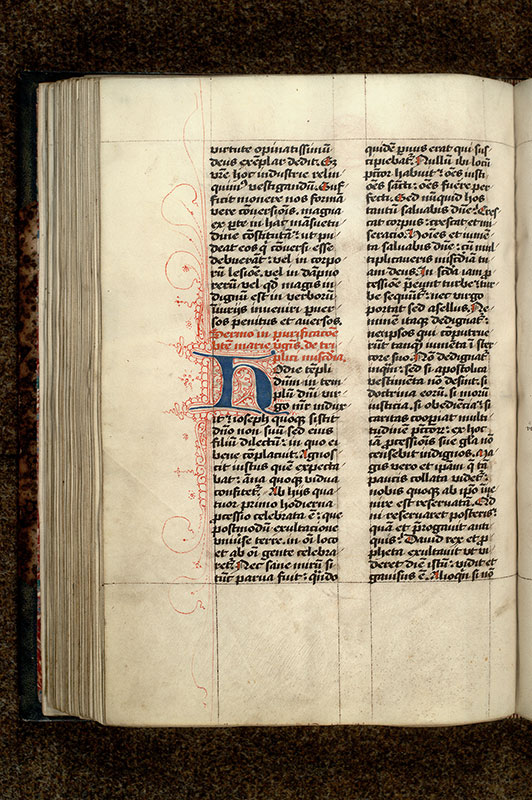 virtute opinatissimū
deus exēplar dedit. Ex
vr̄e hoc industrie relin
quim⁹ vestigandū. Suf
ficit monere nos formā
vere cōversiōis. magna
ex pte in hac māsuetu
dine cōstitutā: ut pu
deat eos q̄ cōversi esse
debuerāt: vel in corpo
rū lesiōe. vel in dāpno
rerū. vel qd̄ magis in
dignū est in verborū
iuriis inveniri pver
sos penitus et aversos.
Sermo in purificatōe
bt̄e marie v̄gīs. de tri
plici miscd̄ia.
Hodie tēpli
dn̄m in tem
plū dn̄i vir
go mr̄ indux
it: ioseph quoq; sistit
dn̄o nō suū sed eius
filiū dilectū: in quo ei
bene cōplacuit. Agnos
cit iustus quē expecta
bat: āna quoq; vidua
confitet᷑. Ab hijs qua
tuor primo hodierna
ꝓcessio celebrata ē: que
postmodū exultacione
vniuſe terre. in oī loco
et ab oī gente celebra
ret᷑. Nec sane mirū si
tūc parva fuit: q̄ndo
quidē p̄uus erat qui sus
cipiebat᷑. Nullū ibi locū
pctōr habuit: oēs iusti
oēs sācti: oēs fuere per
fecti. Sed nūquid hos
tantū salvabis dn̄e: Cres
cat corpus: crescat et mi
seratio. Hoīes et iumē
ta salvabis dn̄e: cū mul
tiplicaveris miscd̄iā tu
am deus. In scd̄a iam ꝓ
cessiōe p̄eunt turbe: tur
be sequūt᷑: nec virgo
portat sed asellus. Ne
minem itaq; dedignat᷑:
nec ipsos qui cōputrue
rūt tanq̄ iumēta ī ster
core suo. Nō dedignat᷑
inq̄m: sed si apostolica
vestimēta nō desint: si
doctrina eorū: si morū
iusticia: si obediēcia: si
caritas cooperiat mul
tudinē pctōr̄: ex hoc
iā ꝓcessiōis sue gl̄a nō
censebit indignos. Ma
gis vero et ipām q̄ tā
paucis collata videt᷑:
nobis quoq; ab ip̄o inve
nire est reservatā. Cur
ni reservaret posteris:
quā et p̄rogavit anti
quis: David rex et p̄
pheta exultavit ut vi
deret diē istū: vidit et
gavisus ē. Alioq̄n si nō